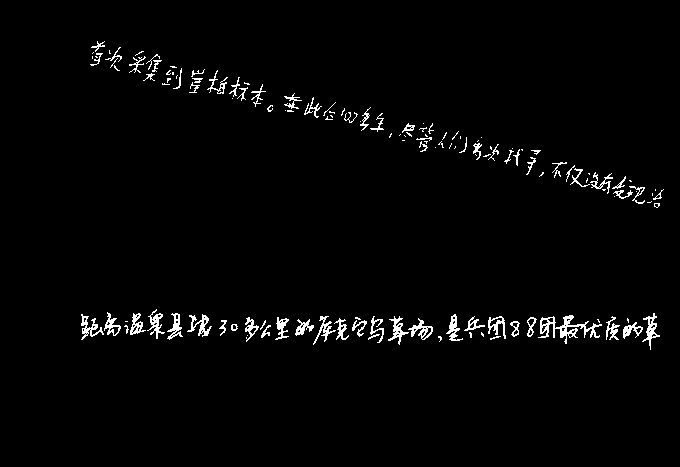 首次采集到崖柏标本。在此后100多年,尽管人们多次找寻,不仅没有发现活
距离温泉县城30多公里的库克它乌草场,是兵团88团最优质的草